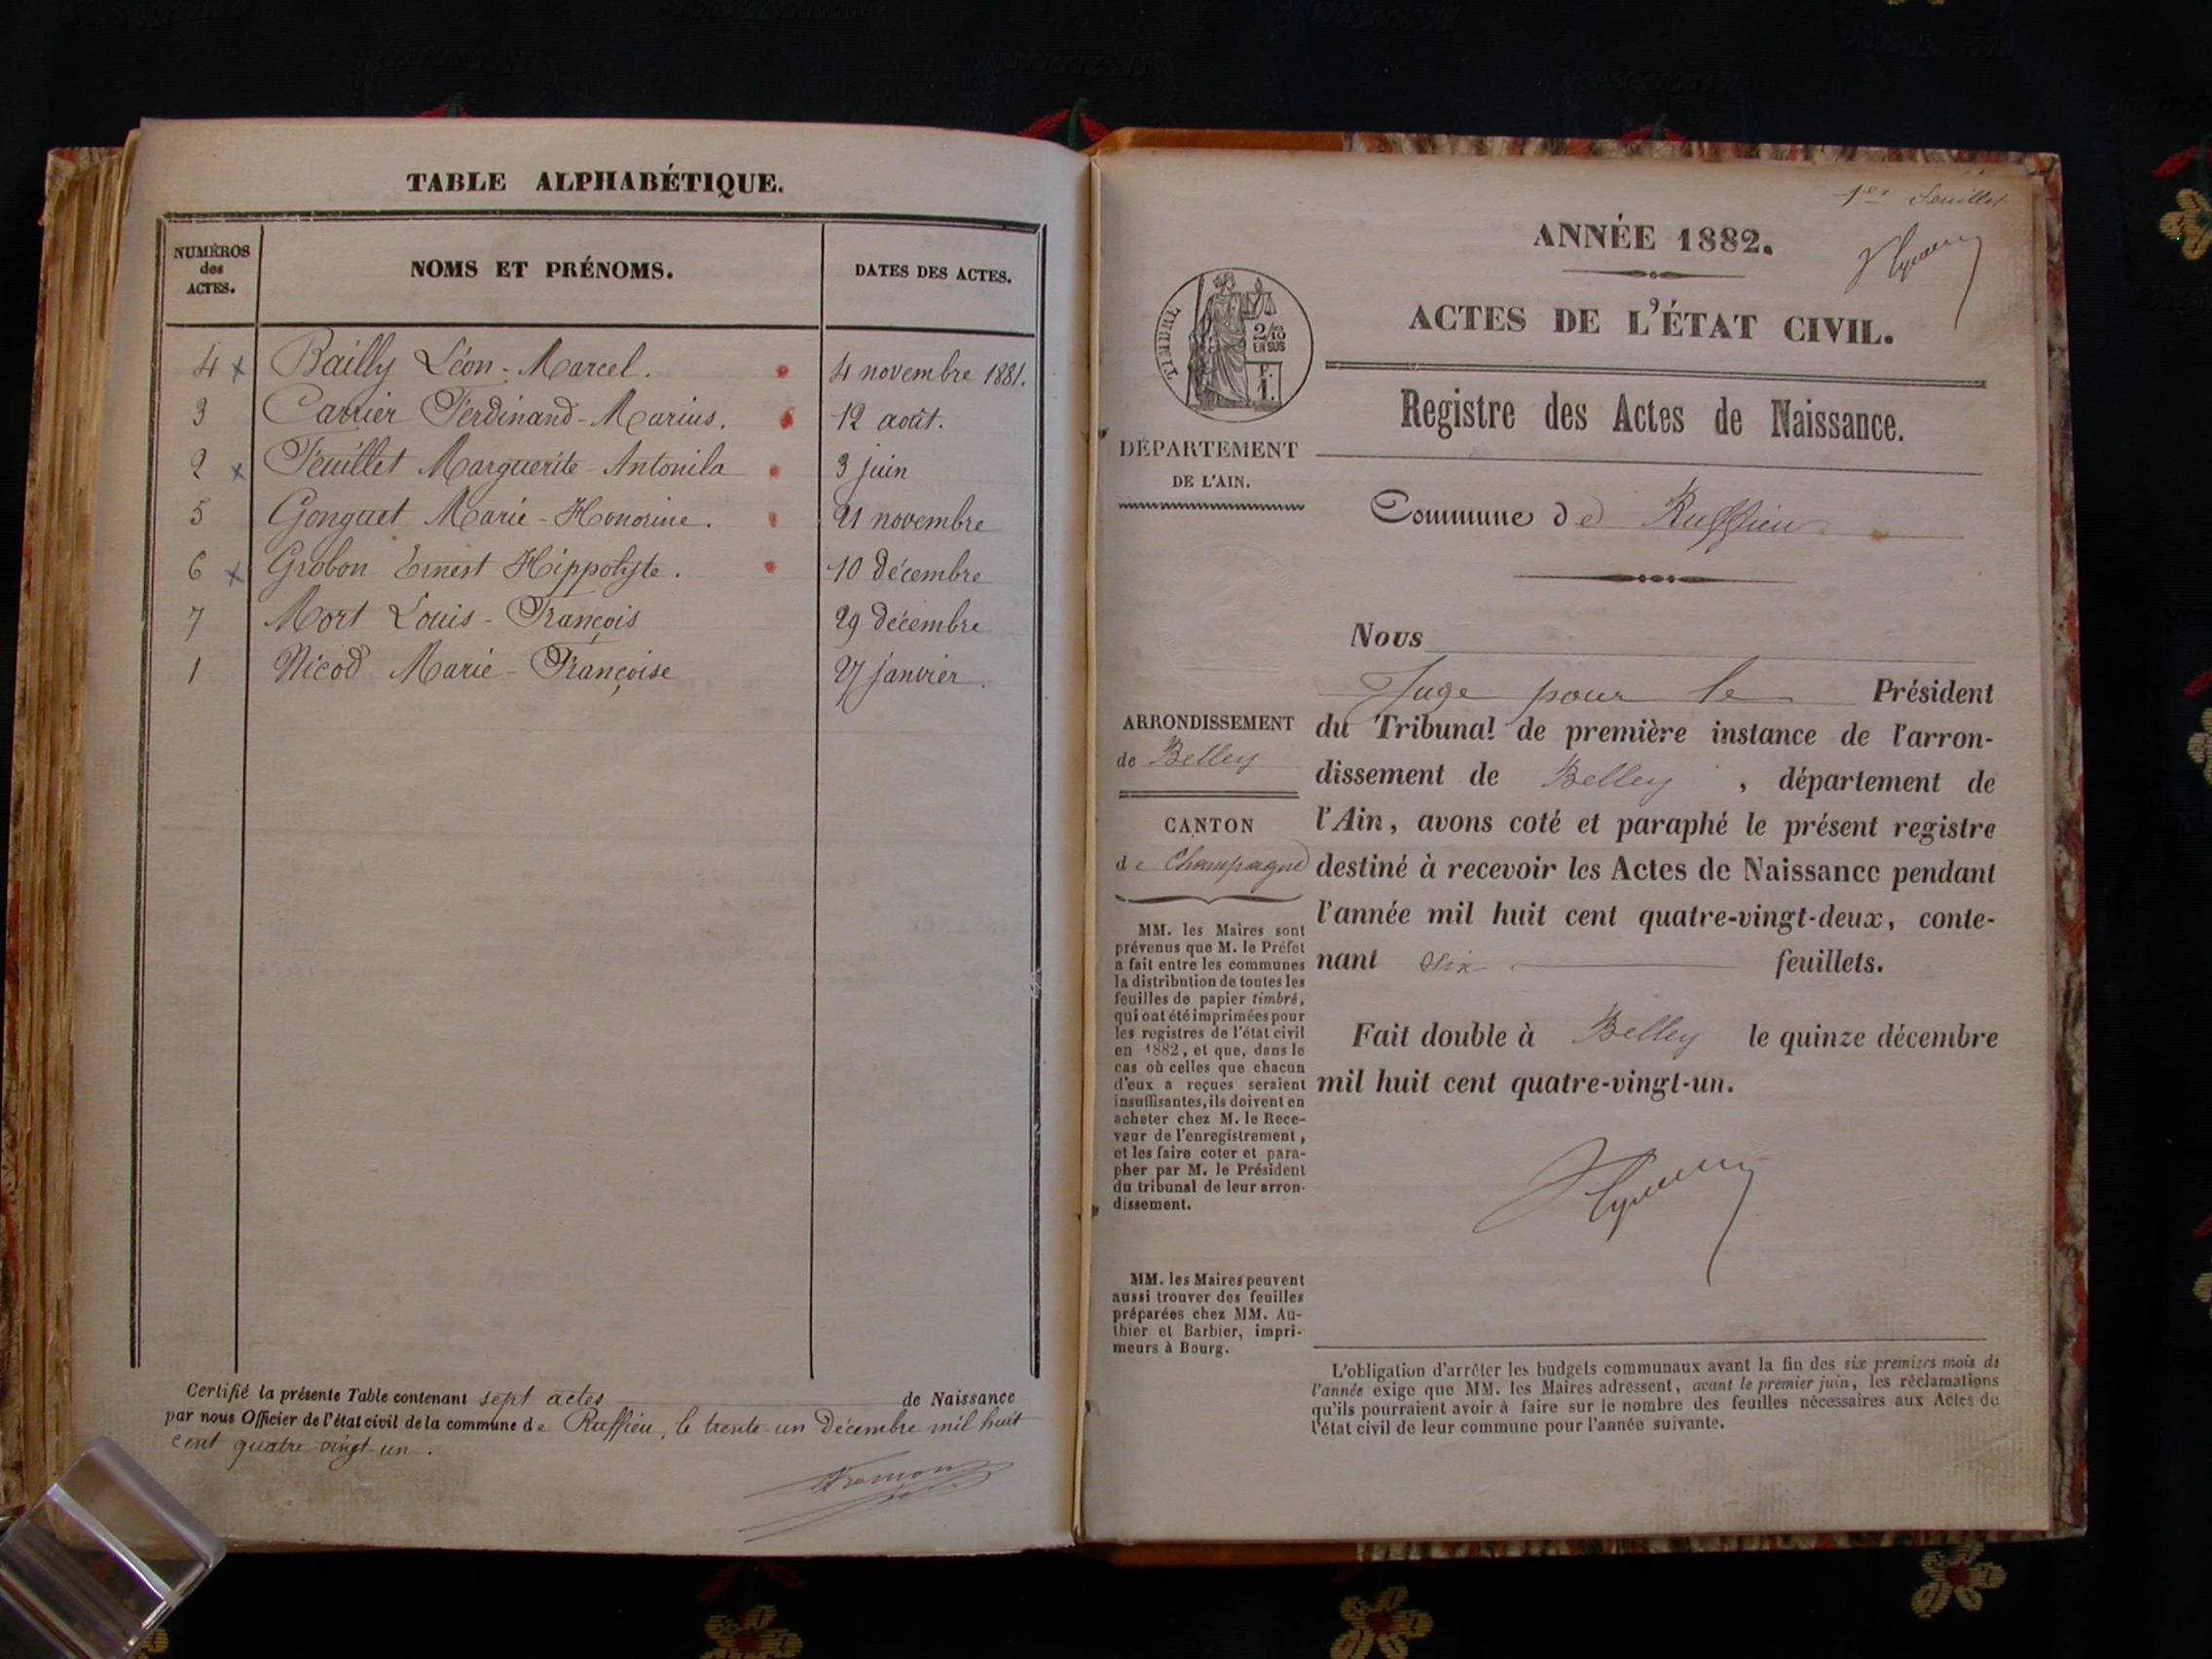 TABLE ALPHABÉTIQUE.
NUMÉROS
des
ACTES.
NOMS ET PRÉNOMS.
DATES DES ACTES.
4 x Bailly Léon-Marcel. 4 novembre 1881.
3 Carrier Ferdinand-Marius. 12 août.
2 x Feuillet Marguerite-Antonila 3 juin
5 Gonguet Marie-Honorine. 21 novembre
6 x Grobon Ernest Hippolyte. 10 décembre
7 Mort Louis-François 29 décembre
1 Nicod Marie-Françoise 27 janvier.
Certifié la présente Table contenant sept actes de Naissance
par nous Officier de l'état civil de la commune de Ruffieu, le trente-un Décembre mil huit
cent quatre-vingt-un.
1er feuillet
ANNÉE 1882.
ACTES DE L'ÉTAT CIVIL.
TIMBRE
2/10
EN SUS
F.
1.
Registre des Actes de Naissance.
DÉPARTEMENT
DE L'AIN.
Commune de Ruffieu
ARRONDISSEMENT
de Belley
CANTON
de Champagne
MM. les Maires sont
prévenus que M. le Préfet
a fait entre les communes
la distribution de toutes les
feuilles de papier timbré,
qui ont été imprimées pour
les registres de l'état civil
en 1882, et que, dans le
cas où celles que chacun
d'eux a reçues seraient
insuffisantes, ils doivent en
acheter chez M. le Rece-
veur de l'enregistrement,
et les faire coter et para-
pher par M. le Président
du tribunal de leur arron-
dissement.
MM. les Maires peuvent
aussi trouver des feuilles
préparées chez MM. Au-
thier et Barbier, impri-
meurs à Bourg.
Nous
Juge pour le Président
du Tribunal de première instance de l'arron-
dissement de Belley, département de
l'Ain, avons coté et paraphé le présent registre
destiné à recevoir les Actes de Naissance pendant
l'année mil huit cent quatre-vingt-deux, conte-
nant six feuillets.
Fait double à Belley le quinze décembre
mil huit cent quatre-vingt-un.
L'obligation d'arrêter les budgets communaux avant la fin des six premiers mois de
l'année exige que MM. les Maires adressent, avant le premier juin, les réclamations
qu'ils pourraient avoir à faire sur le nombre des feuilles nécessaires aux Actes de
l'état civil de leur commune pour l'année suivante.